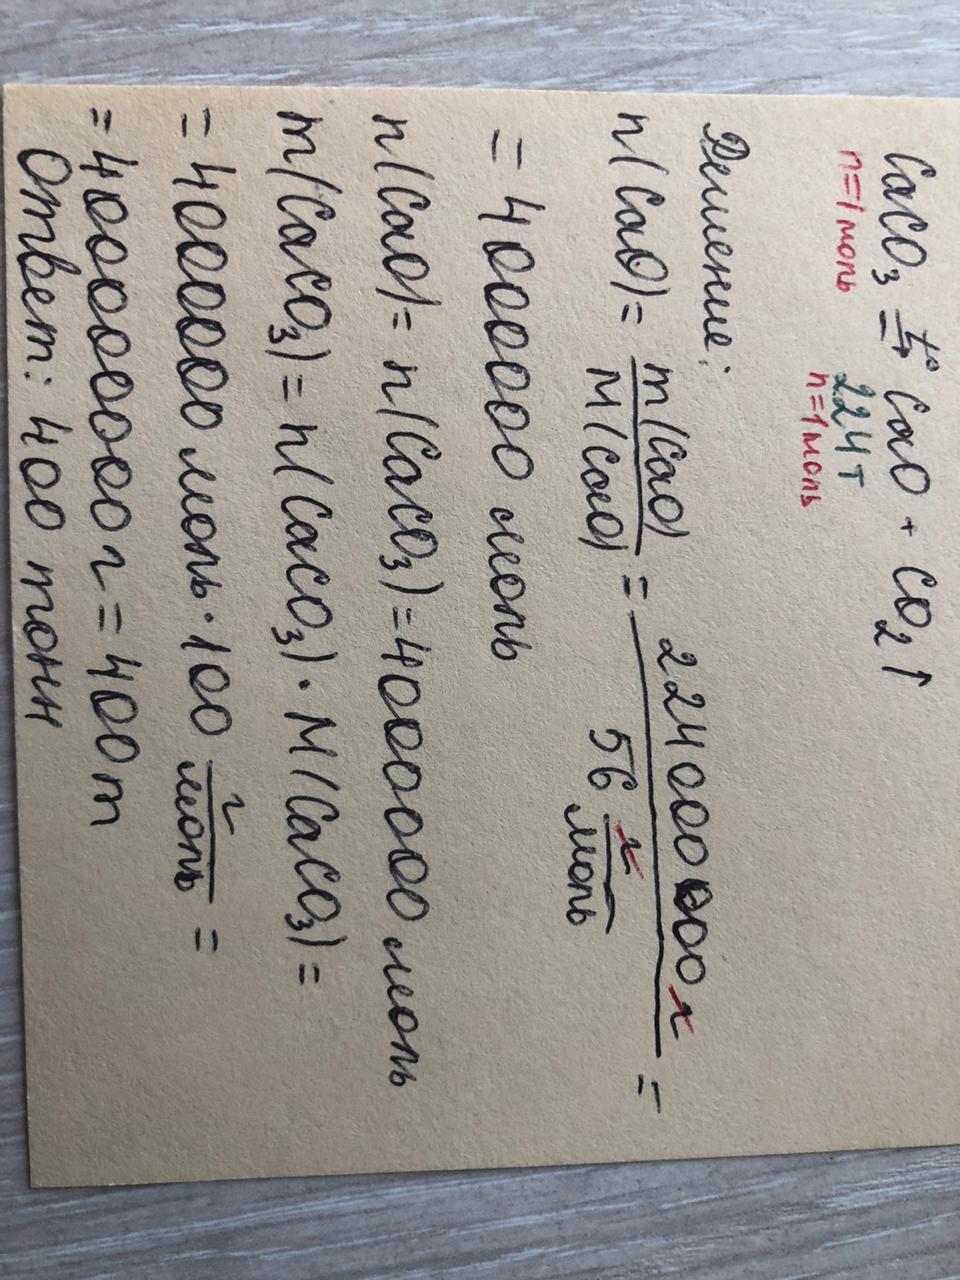 CaCO₃ =t°→ CaO + CO₂↑
224т
n=1моль n=1моль
Решение:
n(CaO) = m(CaO)/M(CaO) = 224000000г/56 г/моль =
= 4000000 моль
n(CaO) = n(CaCO₃) = 4000000 моль
m(CaCO₃) = n(CaCO₃) · M(CaCO₃) =
= 4000000 моль · 100 г/моль =
= 400000000 г = 400т
Ответ: 400 тонн